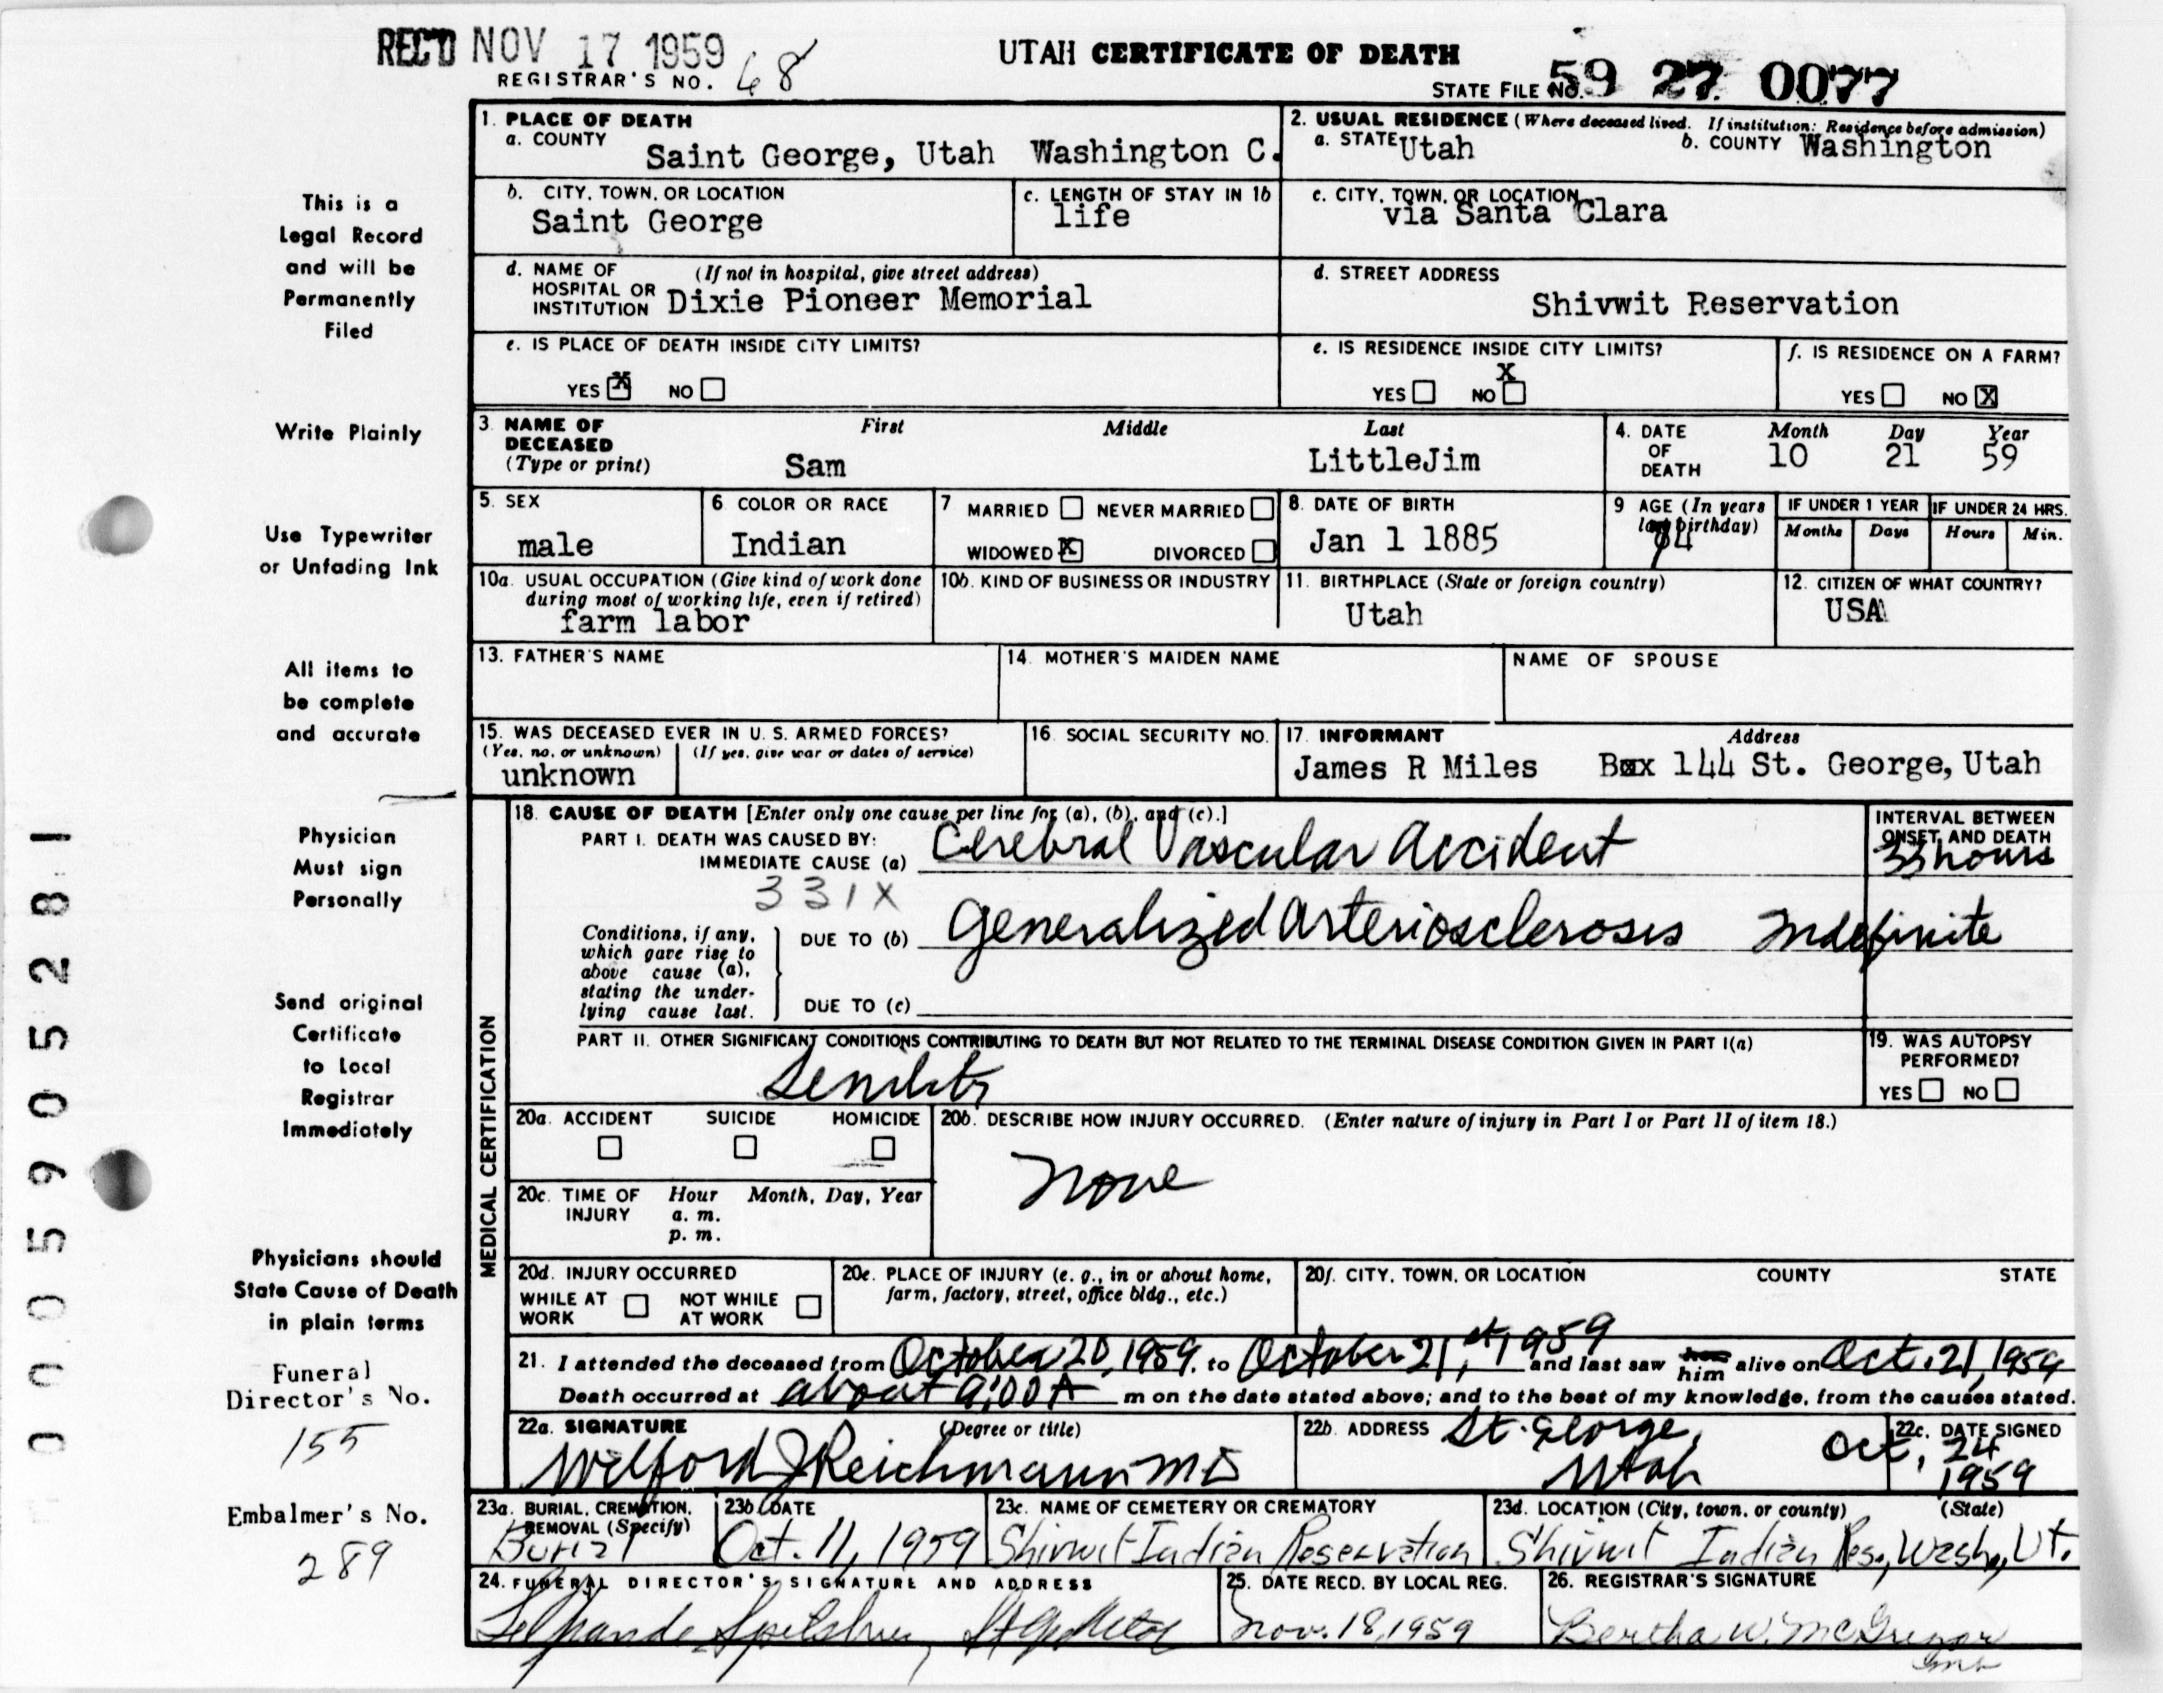 REC'D NOV 17 1959
REGISTRAR'S NO. 68
UTAH CERTIFICATE OF DEATH
STATE FILE NO. 59 27 0077
This is a
Legal Record
and will be
Permanently
Filed
Write Plainly
Use Typewriter
or Unfading Ink
All items to
be complete
and accurate
Physician
Must sign
Personally
Send original
Certificate
to Local
Registrar
Immediately
Physicians should
State Cause of Death
in plain terms
Funeral
Director's No.
155
Embalmer's No.
289
000590528 1
1. PLACE OF DEATH
a. COUNTY Saint George, Utah Washington C.
2. USUAL RESIDENCE (Where deceased lived. If institution: Residence before admission)
a. STATE Utah b. COUNTY Washington
b. CITY, TOWN, OR LOCATION Saint George
c. LENGTH OF STAY IN 1b life
c. CITY, TOWN, OR LOCATION via Santa Clara
d. NAME OF HOSPITAL OR INSTITUTION (If not in hospital, give street address) Dixie Pioneer Memorial
d. STREET ADDRESS Shivwit Reservation
e. IS PLACE OF DEATH INSIDE CITY LIMITS?
YES X NO
e. IS RESIDENCE INSIDE CITY LIMITS?
YES NO X
f. IS RESIDENCE ON A FARM?
YES NO X
3. NAME OF DECEASED (Type or print) First Middle Last
Sam LittleJim
4. DATE OF DEATH Month Day Year
10 21 59
5. SEX male
6 COLOR OR RACE Indian
7 MARRIED NEVER MARRIED
WIDOWED X DIVORCED
8. DATE OF BIRTH Jan 1 1885
9 AGE (In years last birthday) 74
IF UNDER 1 YEAR Months Days
IF UNDER 24 HRS. Hours Min.
10a. USUAL OCCUPATION (Give kind of work done during most of working life, even if retired)
farm labor
10b. KIND OF BUSINESS OR INDUSTRY
11. BIRTHPLACE (State or foreign country) Utah
12. CITIZEN OF WHAT COUNTRY? USA
13. FATHER'S NAME
14. MOTHER'S MAIDEN NAME
NAME OF SPOUSE
15. WAS DECEASED EVER IN U. S. ARMED FORCES?
(Yes, no, or unknown) (If yes, give war or dates of service)
unknown
16. SOCIAL SECURITY NO.
17. INFORMANT Address
James R Miles Box 144 St. George, Utah
MEDICAL CERTIFICATION
18. CAUSE OF DEATH [Enter only one cause per line for (a), (b), and (c).]
PART I. DEATH WAS CAUSED BY:
IMMEDIATE CAUSE (a) Cerebral Vascular Accident
INTERVAL BETWEEN ONSET AND DEATH
33 hours
331X
Conditions, if any, which gave rise to above cause (a), stating the underlying cause last.
DUE TO (b) Generalized Arteriosclerosis Indefinite
DUE TO (c)
PART II. OTHER SIGNIFICANT CONDITIONS CONTRIBUTING TO DEATH BUT NOT RELATED TO THE TERMINAL DISEASE CONDITION GIVEN IN PART I(a)
Senility
19. WAS AUTOPSY PERFORMED?
YES NO
20a. ACCIDENT SUICIDE HOMICIDE
20b. DESCRIBE HOW INJURY OCCURRED. (Enter nature of injury in Part I or Part II of item 18.)
None
20c. TIME OF INJURY Hour Month, Day, Year
a. m.
p. m.
20d. INJURY OCCURRED
WHILE AT WORK NOT WHILE AT WORK
20e. PLACE OF INJURY (e. g., in or about home, farm, factory, street, office bldg., etc.)
20f. CITY, TOWN, OR LOCATION COUNTY STATE
21. I attended the deceased from October 20, 1959, to October 21, st, 1959 and last saw her him alive on Oct. 21, 1959
Death occurred at about 9:00 A m on the date stated above; and to the best of my knowledge, from the causes stated.
22a. SIGNATURE (Degree or title)
Wilford J Reichmann MD
22b. ADDRESS St. George, Utah
22c. DATE SIGNED Oct, 24 1959
23a. BURIAL, CREMATION, REMOVAL (Specify)
Burial
23b. DATE Oct. 11, 1959
23c. NAME OF CEMETERY OR CREMATORY
Shivwit Indian Reservation
23d. LOCATION (City, town, or county) (State)
Shivwit Indian Res., Wash., Ut.
24. FUNERAL DIRECTOR'S SIGNATURE AND ADDRESS
25. DATE RECD. BY LOCAL REG.
Nov. 18, 1959
26. REGISTRAR'S SIGNATURE
Bertha W. McGregor